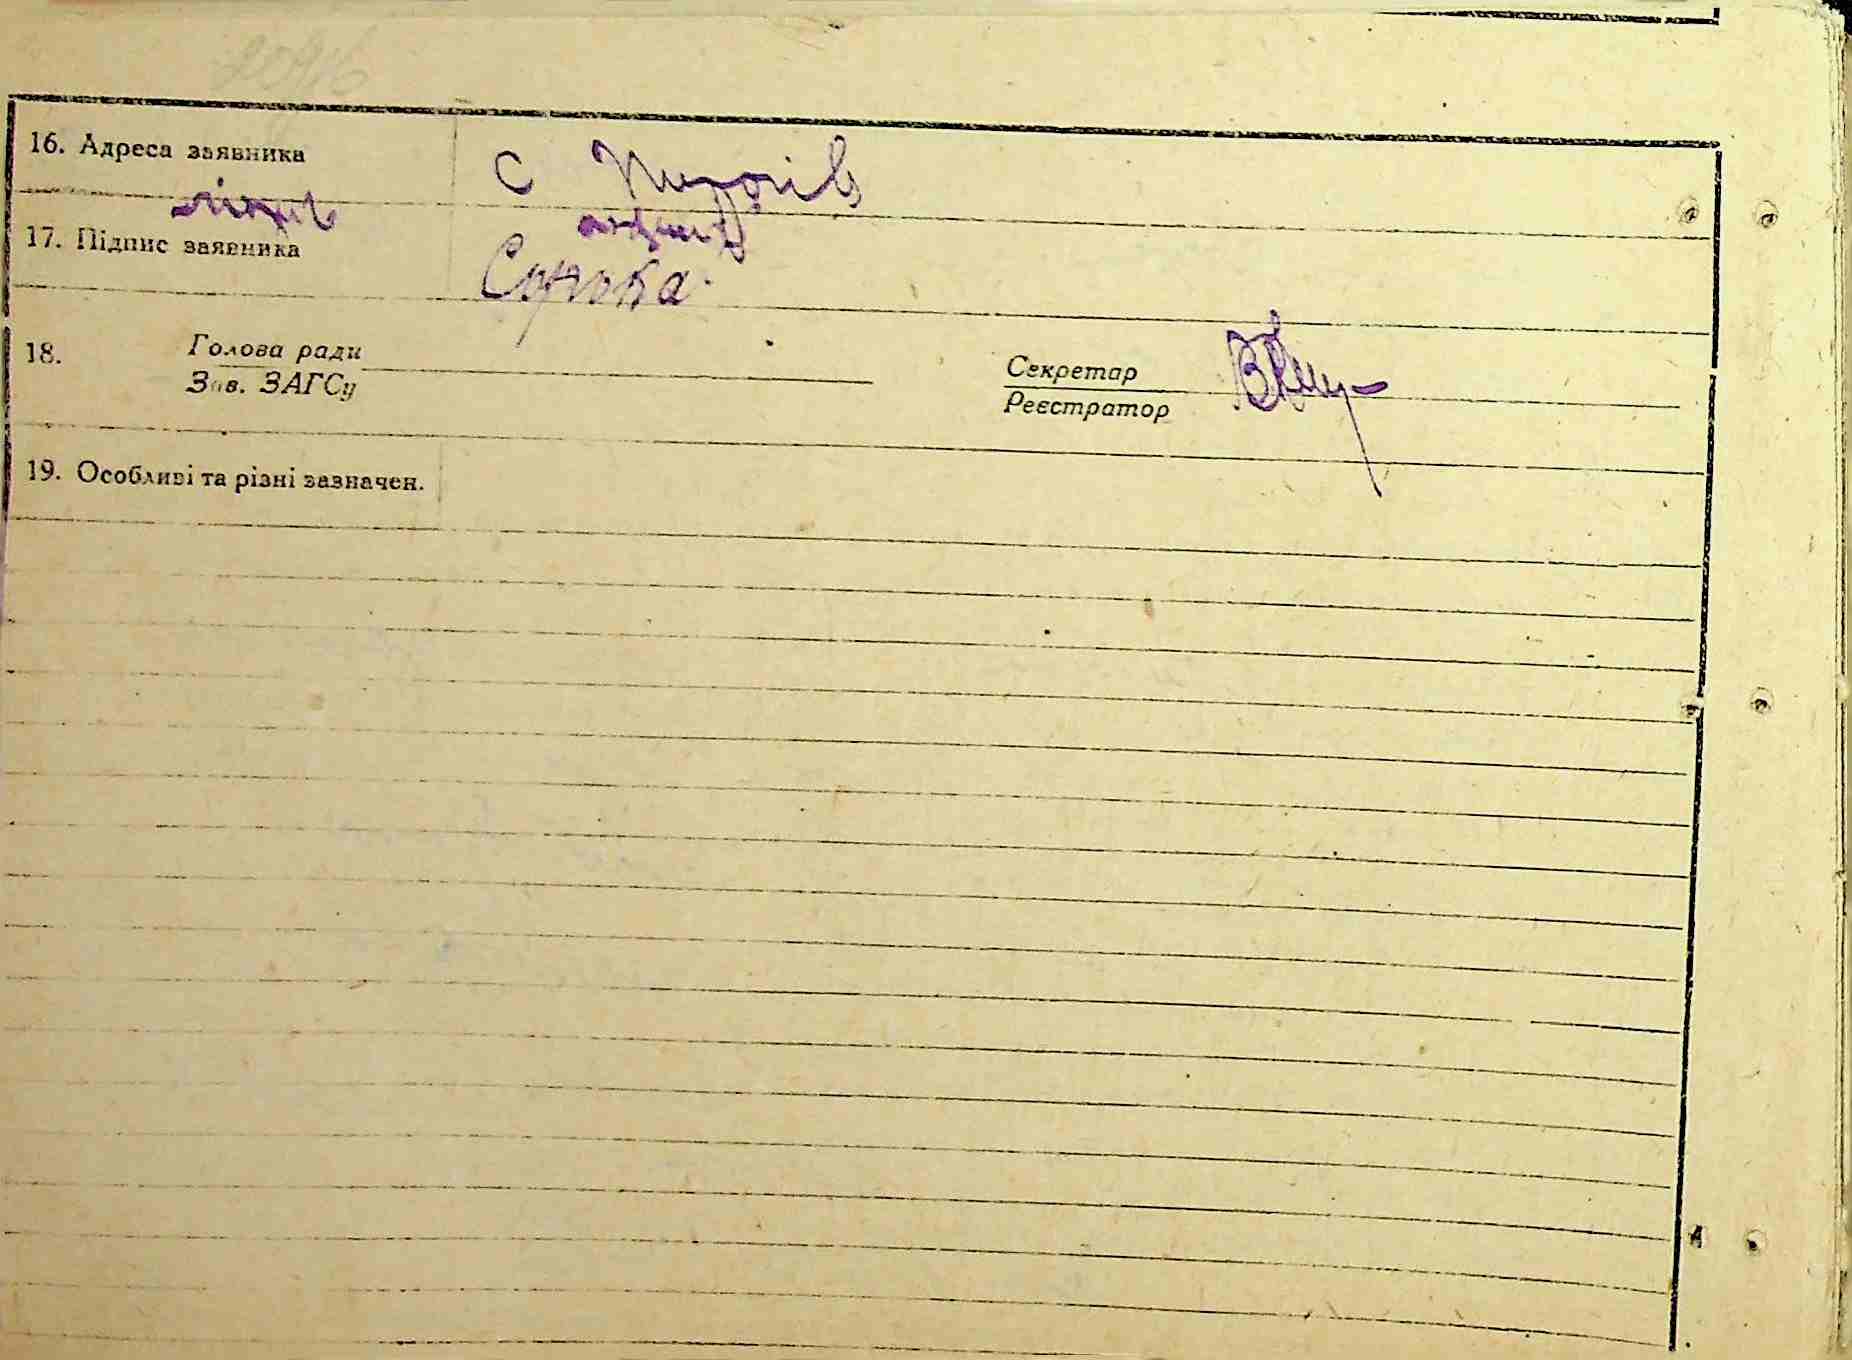 16. Адреса заявника с Пирогів
17. Підпис заявника
Сорока.
18. Голова ради
Зав. ЗАГСу
Секретар
Реєстратор
19. Особливі та різні зазначен.